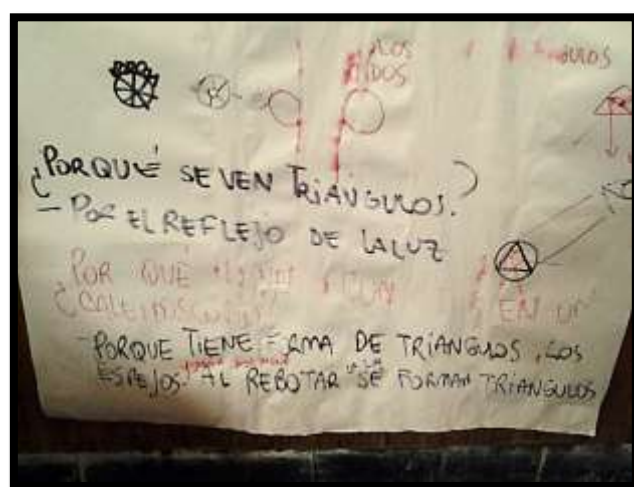 LOS
DOS
¿PORQUÉ SE VEN TRIÁNGULOS?
– POR EL REFLEJO DE LA LUZ
POR QUÉ
EN UN
– PORQUE TIENE FORMA DE TRIANGULOS, LOS
ESPEJOS AL REBOTAR SE FORMAN TRIANGULOS